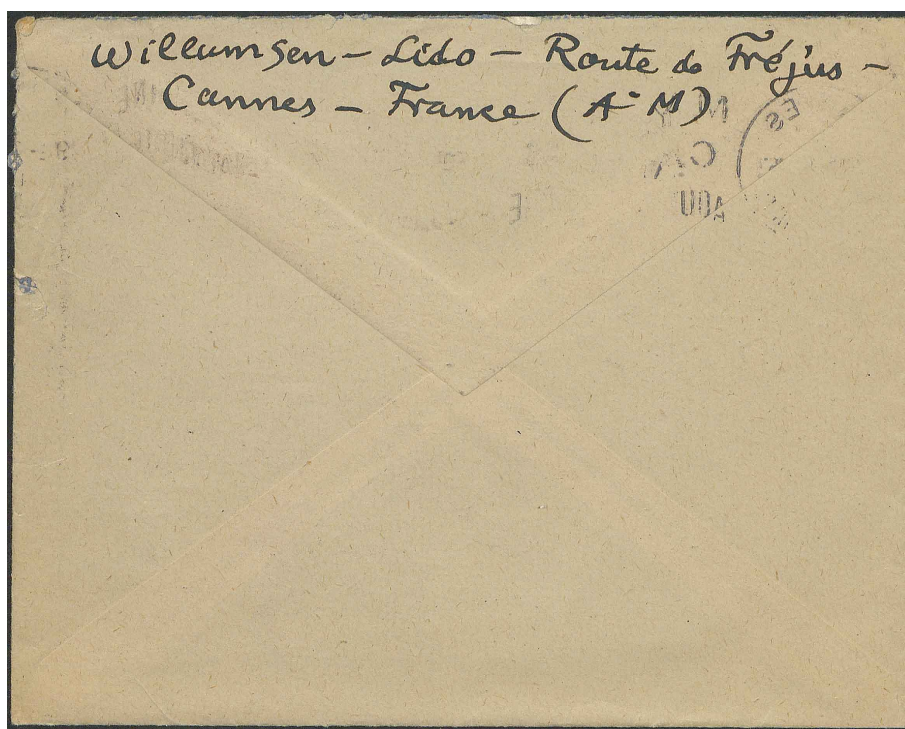 Willumsen – Lido – Route de Fréjus –
Cannes – France (A-M)